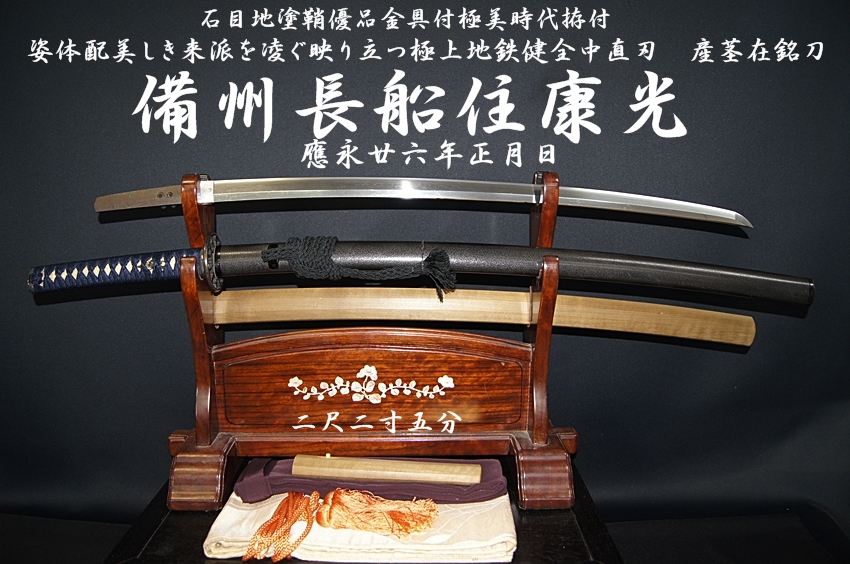 石目地塗鞘優品金具付極美時代拵付
姿体配美しき来派を凌ぐ映り立つ極上地鉄健全中直刃　産茎在銘刀
備州長船住康光
應永廿六年正月日
二尺二寸五分